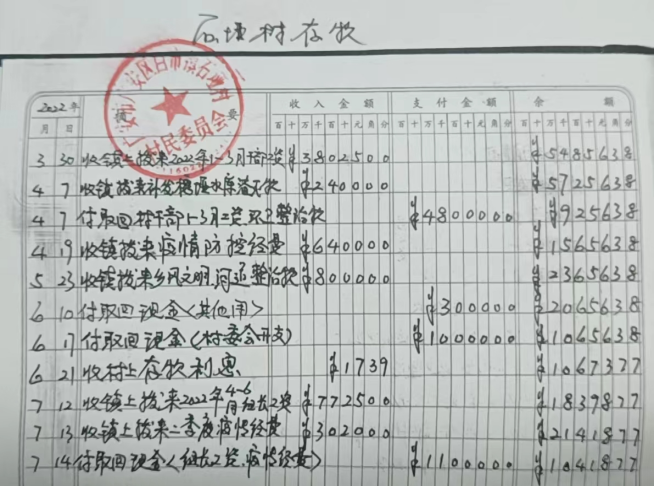 村存款
村民委员会
2022年 摘要 收入金额 支付金额 余额
月 日 百十万千百十元角分 百十万千百十元角分 百十万千百十元角分
3 30 收镇上拨来2022年1~3月工资 ¥3802500 ¥5485638
4 7 收镇拨来 ¥240000 ¥5725638
4 7 付取回村干部1-3月工资 整治款 ¥4800000 ¥925638
4 19 收镇拨来疫情防控经费 ¥640000 ¥1565638
5 23 收镇拨来乡风文明 整治款 ¥800000 ¥2365638
6 10 付取回现金<其他用> ¥300000 ¥2065638
6 17 付取回现金(村委会开支) ¥1000000 ¥1065638
6 21 收村上存款利息 ¥1739 ¥1067377
7 12 收镇上拨来2022年4-6月组长工资 ¥772500 ¥1839877
7 13 收镇上拨来二季度疫情经费 ¥302000 ¥2141877
7 14 付取回现金(组长工资.疫情经费) ¥1100000 ¥1041877